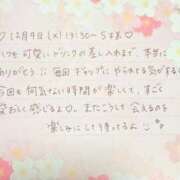 ♡12月9日(火)19:30〜Sさま♡
いつも可愛いドリンクの差し入れまで、本当に
ありがとう 毎回ギャップにやられてる気がする
今回も何気ない時間が楽しくて、すごく
愛おしく感じるよ♡またこうして会えるのを
楽しみにして待ってるね